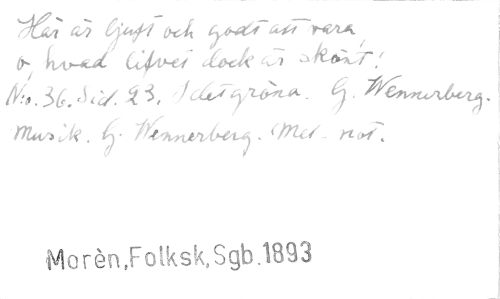 Här är ljuft och godt att vara,
o, hvad lifvet dock är skönt!
N:o. 36. Sid. 23. I det gröna. G. Wennerberg.
Musik. G. Wennerberg. Med not.
Morèn,Folksk,Sgb.1893